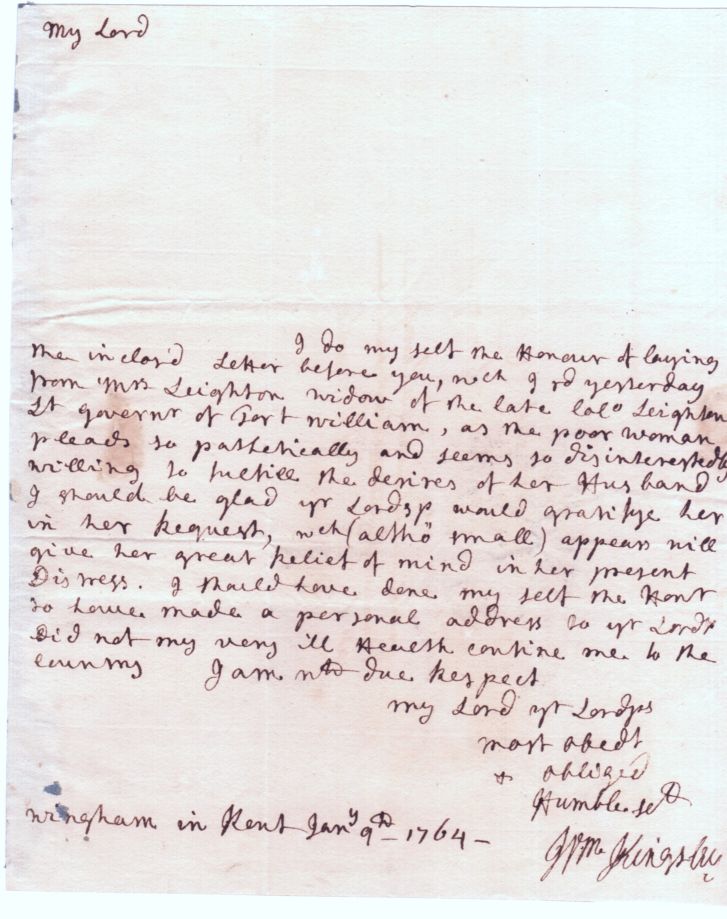 My Lord
I do my self the Honour of laying
the inclos'd Letter before you, wch I rd yesterday
from Mrs Leighton widow of the late Colo Leighton
Lt governr of Fort william, as the poor woman
pleads so pathetically and seems so disinterestedly
willing to fulfill the desires of her Husband
I should be glad yr Lordsp would gratifye her
in her Request, wch (altho small) appears will
give her great Relief of mind in her present
Distress. I should have done my self the Honr
to have made a personal address to yr Lordp
did not my very ill Health confine me to the
country I am wth due Respect
my Lord yr Lordps
most obedt
& obliged
Humble sert
wingham in Kent Jany 9th 1764
Wm Kingsley